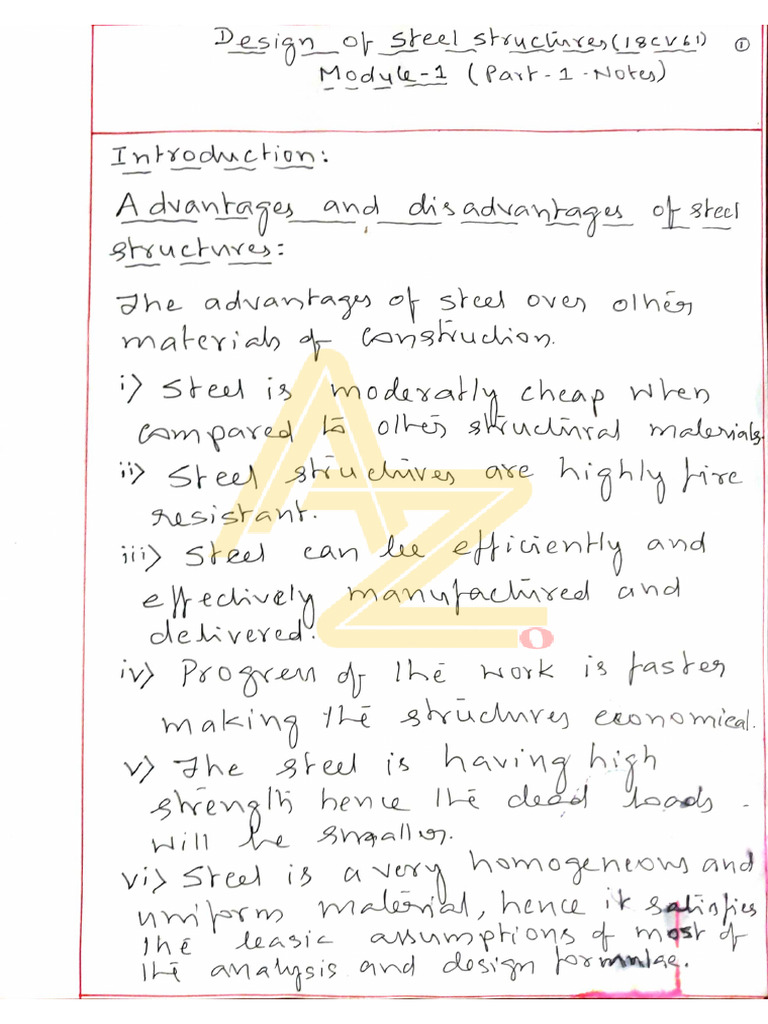 Design of Steel Structures (18CV61) 1
Module-1 (Part-1-Notes)
Introduction:
Advantages and disadvantages of steel
structures:
The advantages of steel over other
materials of construction.
i) Steel is moderatly cheap when
compared to other structural materials.
ii) Steel structures are highly fire
resistant.
iii) Steel can be efficiently and
effectively manufactured and
delivered.
iv) Progress of the work is faster
making the structures economical.
v) The steel is having high
strength hence the dead loads
will be smaller.
vi) Steel is a very homogeneous and
uniform material, hence it satisfies
the basic assumptions of most of
the analysis and design formulae.
AZO